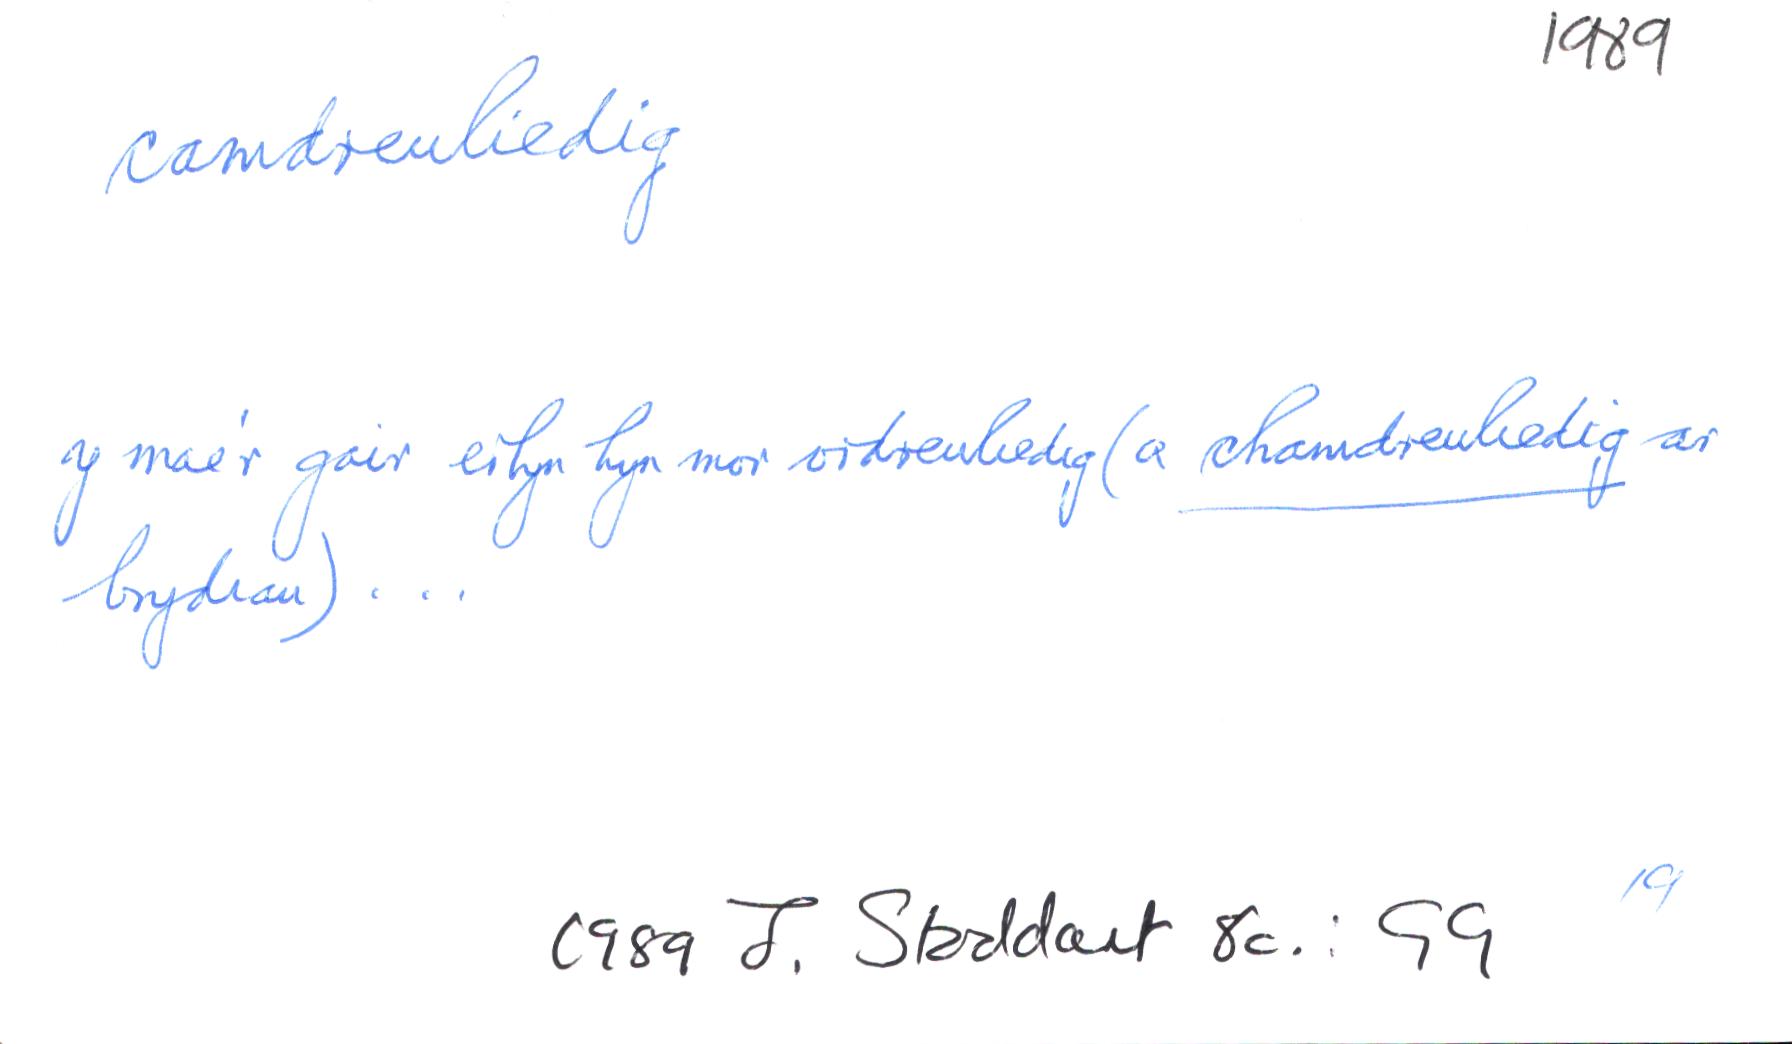 1989
camdreuliedig
y mae'r gair erbyn hyn mor ordreuliedig (a chamdreuliedig ar
brydiau) . . .
1989 J. Stoddart &c.: GG 19